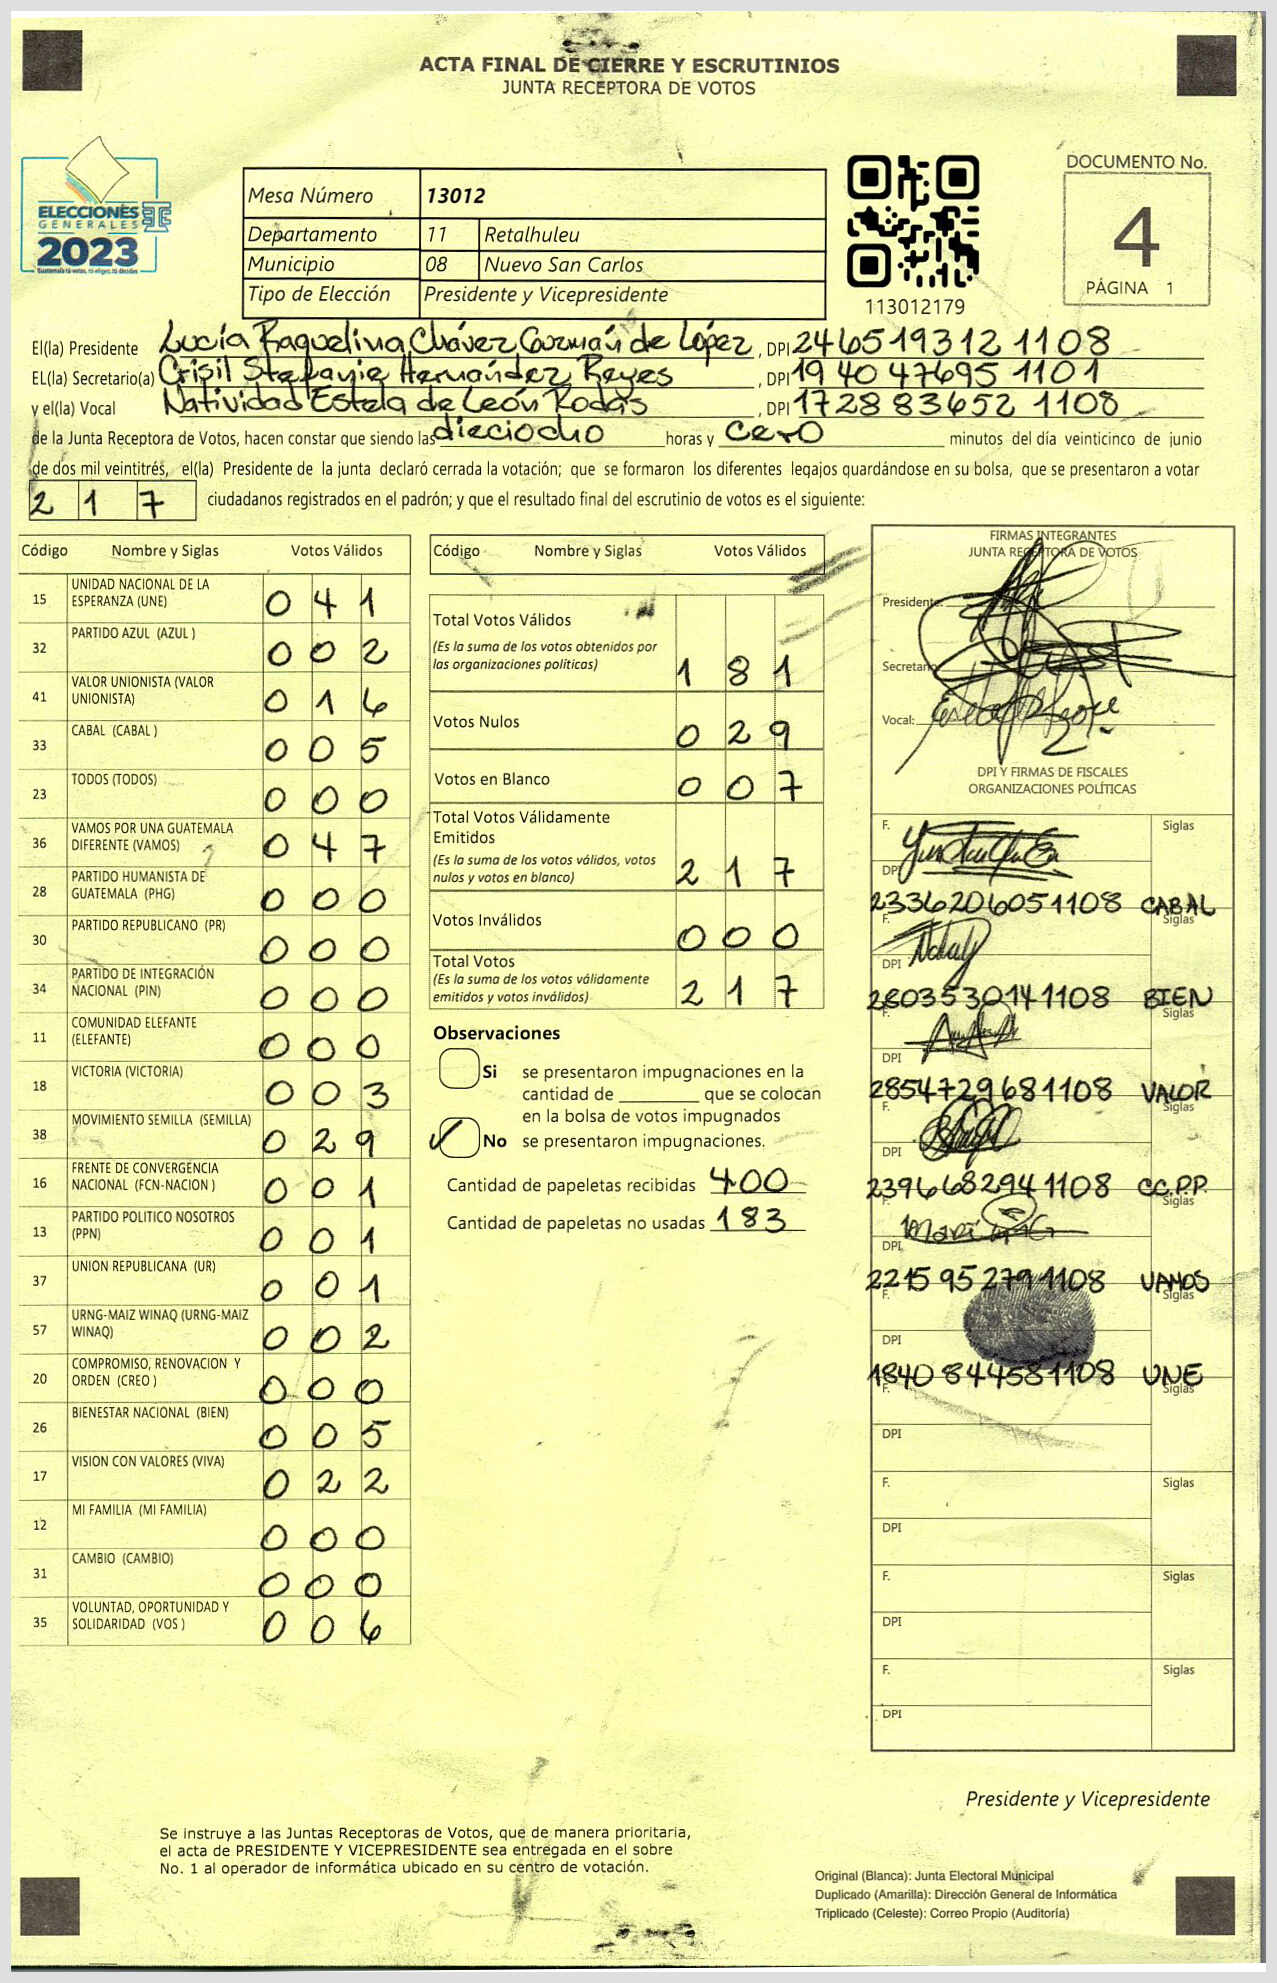 ACTA FINAL DE CIERRE Y ESCRUTINIOS
JUNTA RECEPTORA DE VOTOS
ELECCIONES
GENERALES
2023
Guatemala tú votas, tú eliges, tú decides
Mesa Número 13012
Departamento 11 Retalhuleu
Municipio 08 Nuevo San Carlos
Tipo de Elección Presidente y Vicepresidente
113012179
DOCUMENTO No.
4
PÁGINA 1
El(la) Presidente Lucía Raquelina Chávez Guzmán de López, DPI 2465193121108
EL(la) Secretario(a) Crisil Stefanie Hernández Reyes, DPI 1940476951101
y el(la) Vocal Natividad Estela de León Rodas, DPI 1728836521108
de la Junta Receptora de Votos, hacen constar que siendo las dieciocho horas y cero minutos del día veinticinco de junio
de dos mil veintitrés, el(la) Presidente de la junta declaró cerrada la votación; que se formaron los diferentes legajos quardándose en su bolsa, que se presentaron a votar
217 ciudadanos registrados en el padrón; y que el resultado final del escrutinio de votos es el siguiente:
Código Nombre y Siglas Votos Válidos
15 UNIDAD NACIONAL DE LA ESPERANZA (UNE) 041
32 PARTIDO AZUL (AZUL ) 002
41 VALOR UNIONISTA (VALOR UNIONISTA) 016
33 CABAL (CABAL ) 005
23 TODOS (TODOS) 000
36 VAMOS POR UNA GUATEMALA DIFERENTE (VAMOS) 047
28 PARTIDO HUMANISTA DE GUATEMALA (PHG) 000
30 PARTIDO REPUBLICANO (PR) 000
34 PARTIDO DE INTEGRACIÓN NACIONAL (PIN) 000
11 COMUNIDAD ELEFANTE (ELEFANTE) 000
18 VICTORIA (VICTORIA) 003
38 MOVIMIENTO SEMILLA (SEMILLA) 029
16 FRENTE DE CONVERGENCIA NACIONAL (FCN-NACION ) 001
13 PARTIDO POLITICO NOSOTROS (PPN) 001
37 UNION REPUBLICANA (UR) 001
57 URNG-MAIZ WINAQ (URNG-MAIZ WINAQ) 002
20 COMPROMISO, RENOVACION Y ORDEN (CREO ) 000
26 BIENESTAR NACIONAL (BIEN) 005
17 VISION CON VALORES (VIVA) 022
12 MI FAMILIA (MI FAMILIA) 000
31 CAMBIO (CAMBIO) 000
35 VOLUNTAD, OPORTUNIDAD Y SOLIDARIDAD (VOS ) 006
Código Nombre y Siglas Votos Válidos
Total Votos Válidos
(Es la suma de los votos obtenidos por
las organizaciones políticas) 181
Votos Nulos 029
Votos en Blanco 007
Total Votos Válidamente
Emitidos
(Es la suma de los votos válidos, votos
nulos y votos en blanco) 217
Votos Inválidos 000
Total Votos
(Es la suma de los votos válidamente
emitidos y votos inválidos) 217
Observaciones
Si se presentaron impugnaciones en la
cantidad de ________ que se colocan
en la bolsa de votos impugnados
No se presentaron impugnaciones.
Cantidad de papeletas recibidas 400
Cantidad de papeletas no usadas 183
FIRMAS INTEGRANTES
JUNTA RECEPTORA DE VOTOS
Presidente:
Secretario
Vocal:
DPI Y FIRMAS DE FISCALES
ORGANIZACIONES POLÍTICAS
F. Siglas
DPI
2336206051108 CABAL
F. Siglas
DPI
2803530141108 BIEN
F. Siglas
DPI
2854729681108 VALOR
F. Siglas
DPI
2396682941108 CC.P.P.
F. Siglas
DPI
2215952791108 VAMOS
F. Siglas
DPI
1840844581108 UNE
F. Siglas
DPI
F. Siglas
DPI
F. Siglas
DPI
F. Siglas
DPI
Presidente y Vicepresidente
Se instruye a las Juntas Receptoras de Votos, que de manera prioritaria,
el acta de PRESIDENTE Y VICEPRESIDENTE sea entregada en el sobre
No. 1 al operador de informática ubicado en su centro de votación.
Original (Blanca): Junta Electoral Municipal
Duplicado (Amarilla): Dirección General de Informática
Triplicado (Celeste): Correo Propio (Auditoría)